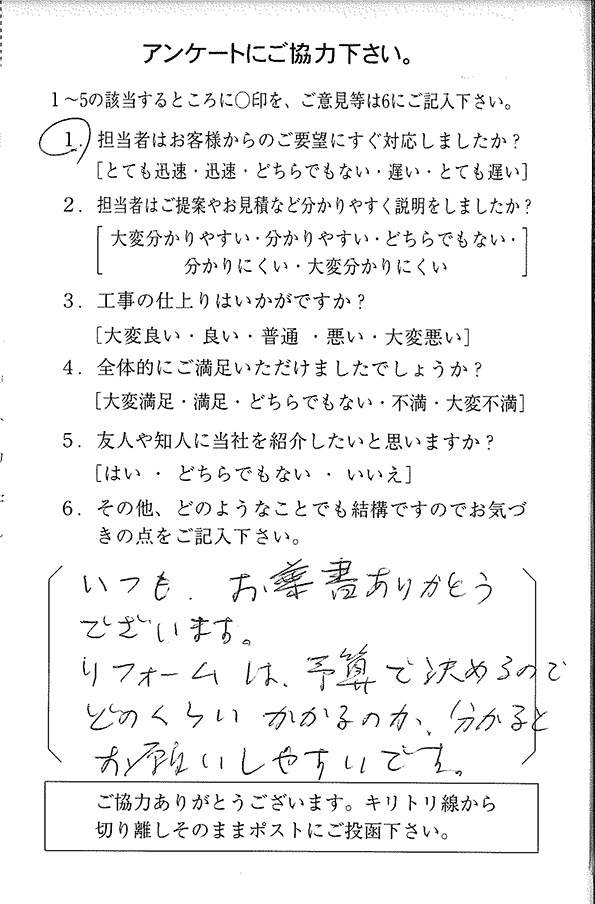 アンケートにご協力下さい。
1～5の該当するところに○印を、ご意見等は6にご記入下さい。
1. 担当者はお客様からのご要望にすぐ対応しましたか？
[とても迅速・迅速・どちらでもない・遅い・とても遅い]
2. 担当者はご提案やお見積など分かりやすく説明をしましたか？
[大変分かりやすい・分かりやすい・どちらでもない・
分かりにくい・大変分かりにくい]
3. 工事の仕上りはいかがですか？
[大変良い・良い・普通 ・悪い・大変悪い]
4. 全体的にご満足いただけましたでしょうか？
[大変満足・満足・どちらでもない・不満・大変不満]
5. 友人や知人に当社を紹介したいと思いますか？
[はい ・ どちらでもない ・ いいえ]
6. その他、どのようなことでも結構ですのでお気づ
きの点をご記入下さい。
いつも、お葉書ありがとう
ございます。
リフォームは、予算で決めるので
どのくらいかかるのか、分かると
お願いしやすいです。
ご協力ありがとうございます。キリトリ線から
切り離しそのままポストにご投函下さい。